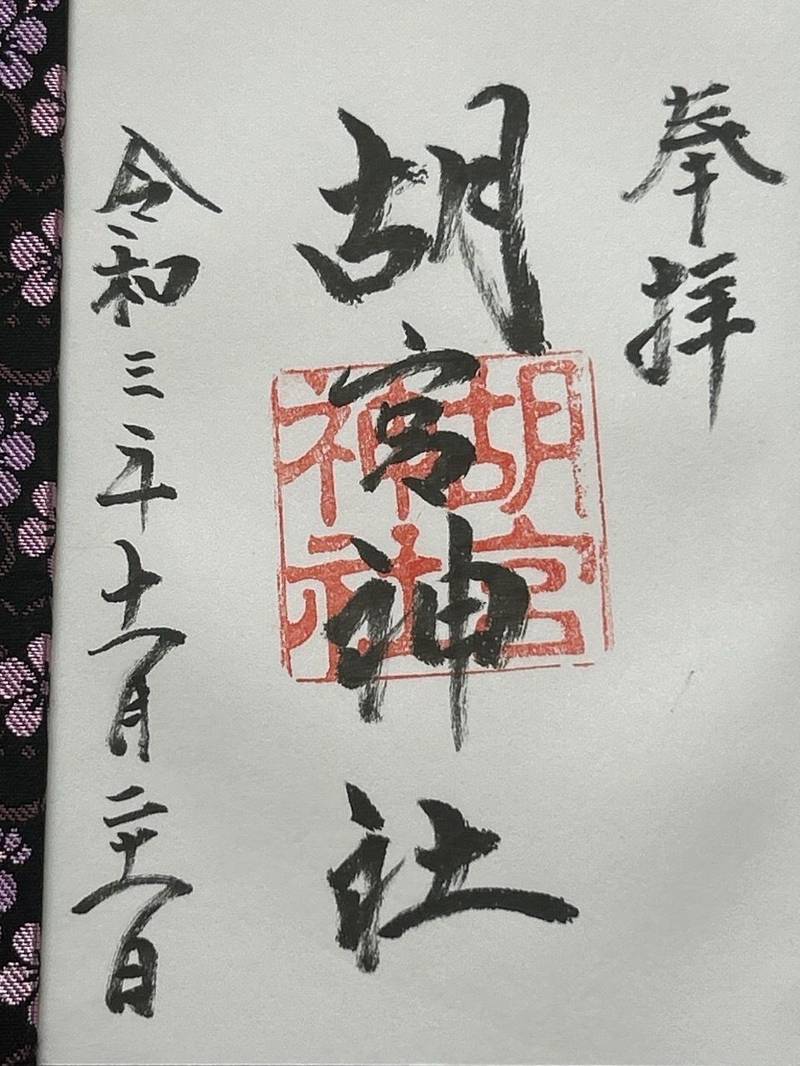 奉拝
胡宮神社
胡宮
神社
令和三年十一月二十一日